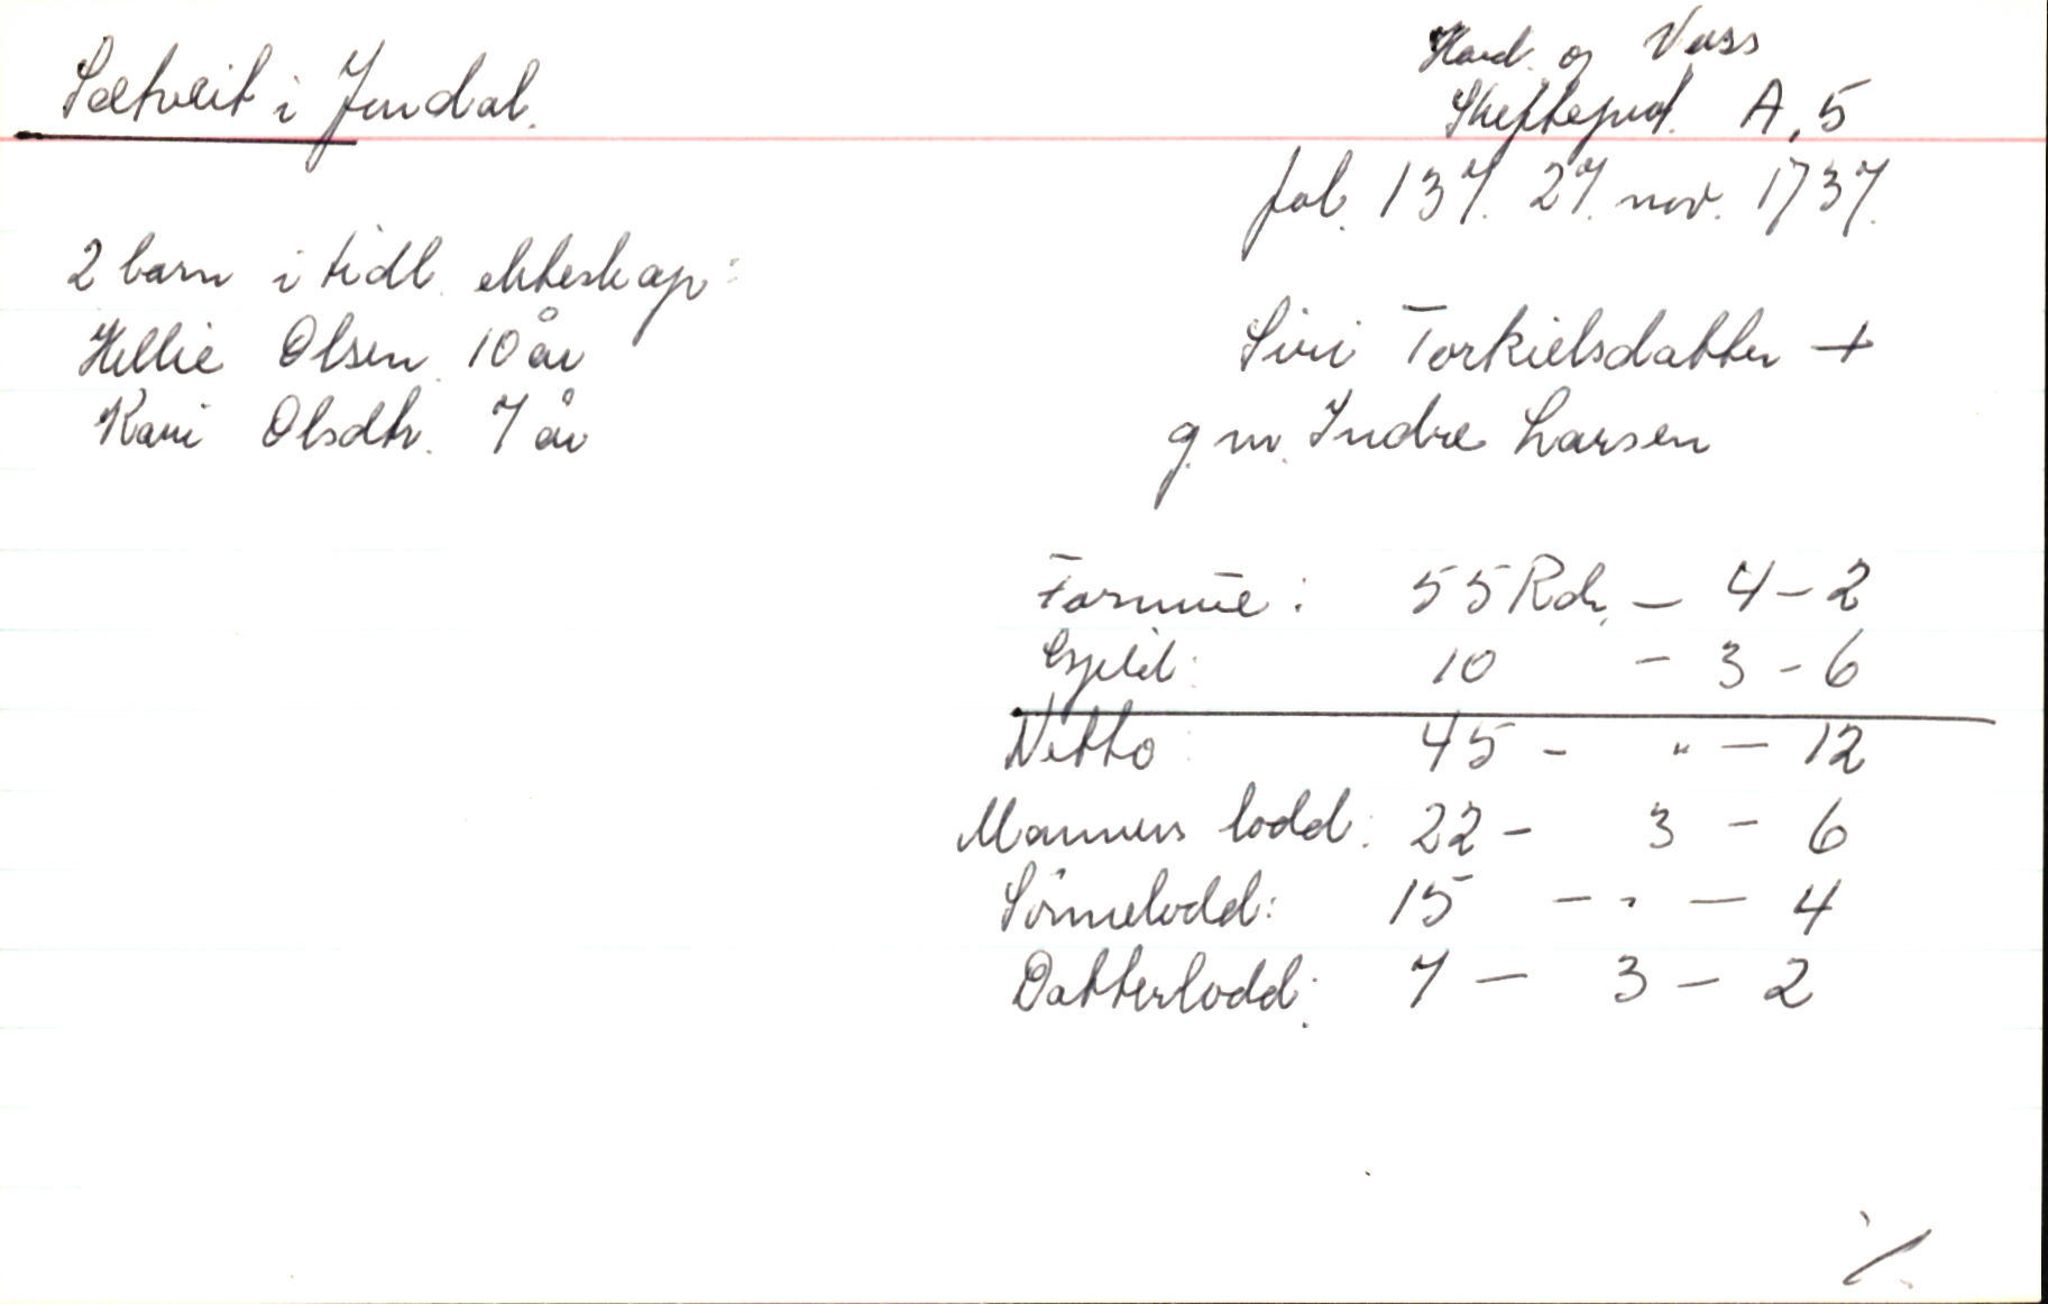 Sætveit i Jondal.
Hard. og Voss
Skifteprot. A, 5
fol. 137. 27. nov. 1737.
2 barn i tidl. ekteskap:
Hellie Olsen 10 år
Kari Olsdtr. 7 år
Siri Torkielsdatter +
g.m. Indre Larsen
Formue: 55 Rdr. - 4 - 2
Gjeld: 10 - 3 - 6
Netto: 45 - " - 12
Mannens lodd: 22 - 3 - 6
Sönnelodd: 15 - " - 4
Datterlodd: 7 - 3 - 2
./.